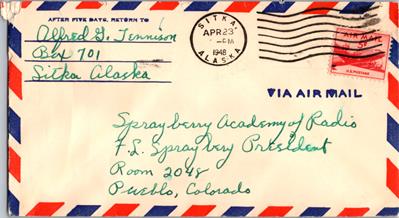 AFTER FIVE DAYS, RETURN TO
Alfred G. Tennison
Box 701
Sitka Alaska
SITKA
APR 23
-PM
1948
ALASKA
AIR MAIL
5¢
U.S. POSTAGE
VIA AIR MAIL
Sprayberry Academy of Radio
F. L. Sprayberry President
Room 2048
Pueblo, Colorado